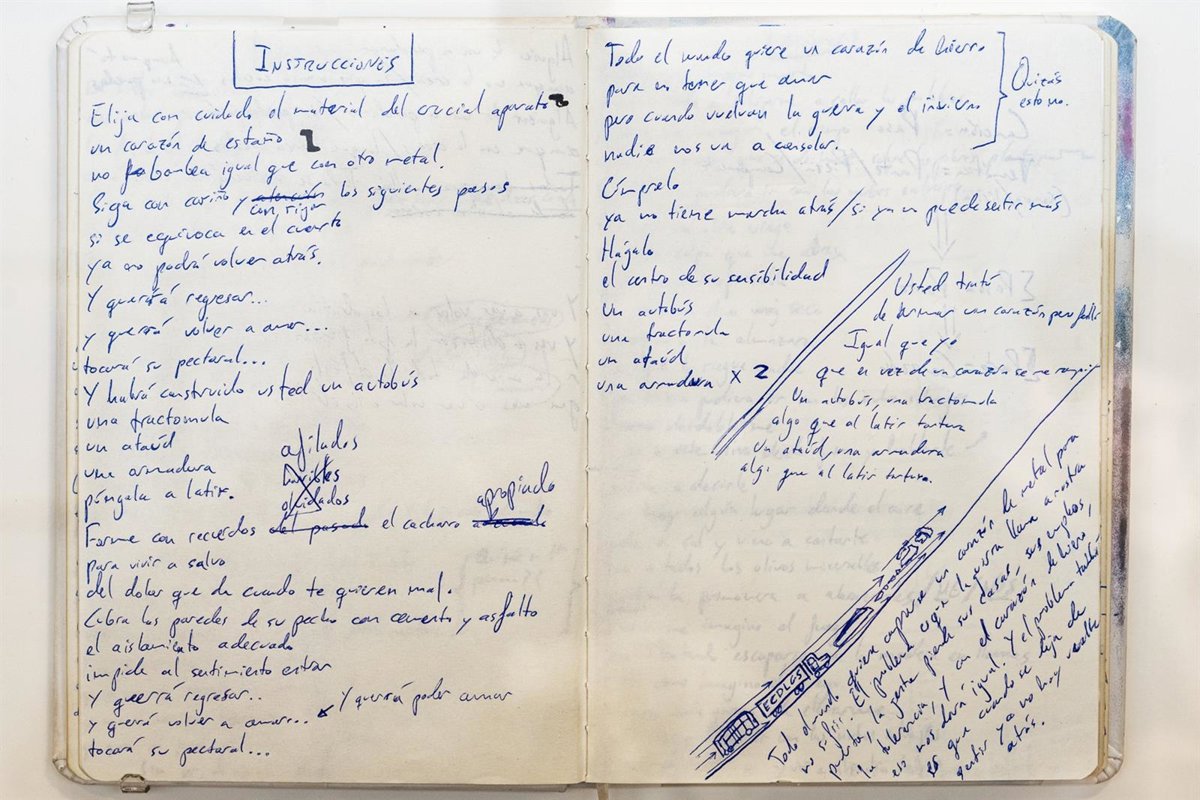 INSTRUCCIONES
Elija con cuidado el material del crucial aparato
un corazón de estaño
no bombea igual que con otro metal.
Siga con cariño y atención los siguientes pasos
con rigor
si se equivoca en el cuarto
ya no podrá volver atrás.
Y querrá regresar...
y querrá volver a amar...
tocará su pectoral...
Y habrá construido usted un autobús
una fractomula
un ataúd
una armadura
póngala a latir.
afilados
olvidados
Forme con recuerdos del pasado el cacharro
apropiado
para vivir a salvo
del dolor que da cuando te quieren mal.
Cubra las paredes de su pecho con cemento y asfalto
el aislamiento adecuado
impide al sentimiento entrar
Y querrá regresar...
y querrá volver a amar... Y querrá poder amar
tocará su pectoral...
Todo el mundo quiere un corazón de hierro
para no tener que amar
pero cuando vuelvan la guerra y el invierno
nadie nos va a consolar.
Quizás
esto no.
Cómprelo
ya no tiene marcha atrás / si ya no puede sentir más
Hágalo
el centro de su sensibilidad
Un autobús
una fractomula
un ataúd
una armadura x 2
Usted trató
de armar un corazón pero falló
Igual que yo
que en vez de un corazón se me rompió
Un autobús, una fractomula
algo que al latir tortura
Un ataúd, una armadura
algo que al latir tortura.
Todo el mundo quiere comprarse un corazón de metal para
no sufrir. El problema es que la guerra llama a nuestra
puerta, la gente pierde sus casas, sus empleos,
la tolerancia, y con el corazón de hierro,
eso nos dará igual. Y el problema también
es que cuando se deja de
sentir ya no hay vuelta
atrás.